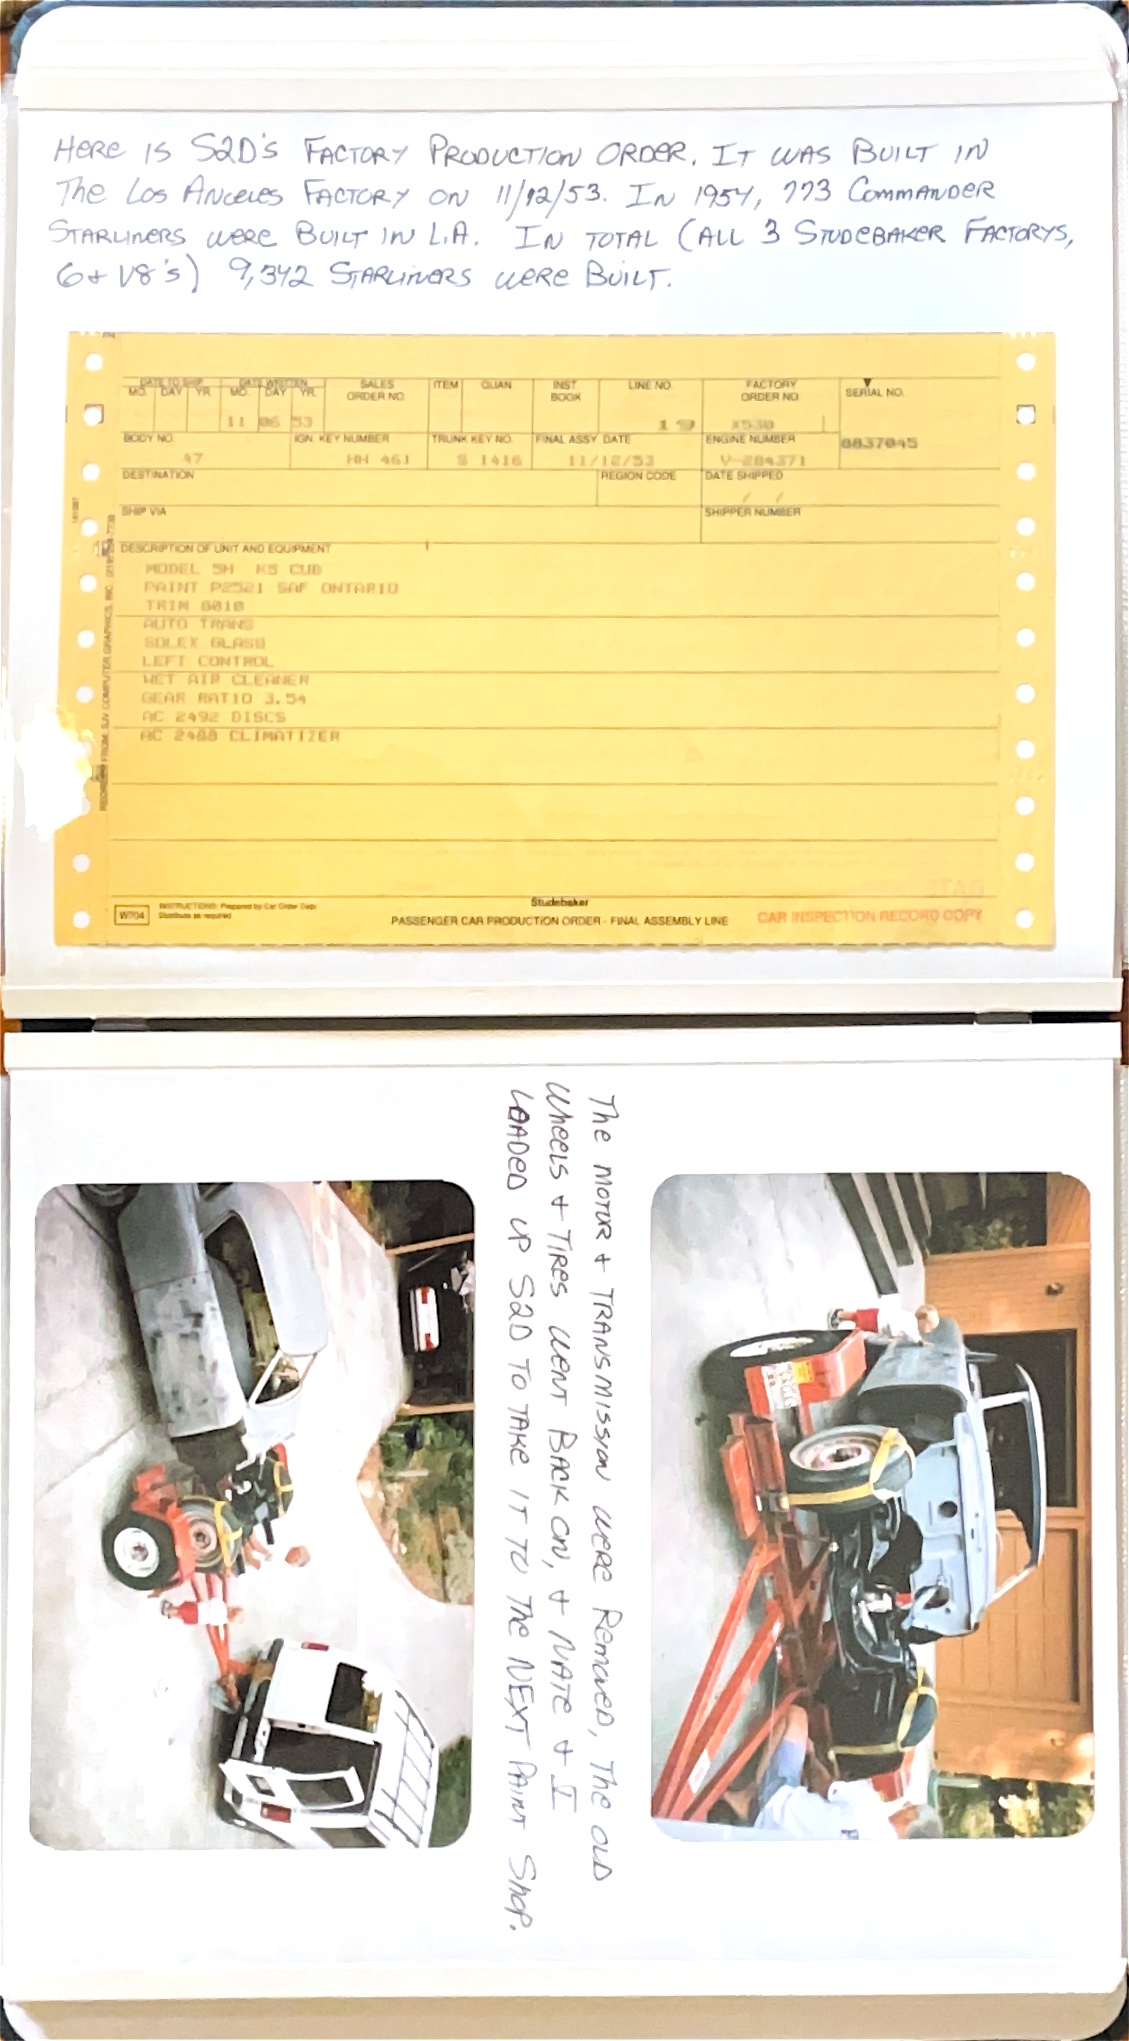 Here is S2D's Factory Production Order. It was Built in
The Los Angeles Factory on 11/12/53. In 1954, 773 Commander
Starliners were Built in L.A. In total (all 3 Studebaker Factorys,
6 + V8's) 9,342 Starliners were Built.
DATE TO SHIP
MO. DAY YR
DATE WRITTEN
MO. DAY YR.
11 06 53
SALES
ORDER NO.
ITEM
QUAN
INST.
BOOK
LINE NO.
19
FACTORY
ORDER NO.
SERIAL NO.
BODY NO.
47
IGN. KEY NUMBER
HH 461
TRUNK KEY NO.
S 1416
FINAL ASSY DATE
11/12/53
ENGINE NUMBER
V-284371
8837045
DESTINATION
REGION CODE
DATE SHIPPED
SHIP VIA
SHIPPER NUMBER
DESCRIPTION OF UNIT AND EQUIPMENT
MODEL 5H K5 CUD
PAINT P2521 SAF ONTARIO
TRIM 8010
AUTO TRANS
SOLEX GLASS
LEFT CONTROL
WET AIR CLEANER
GEAR RATIO 3.54
AC 2492 DISCS
AC 2488 CLIMATIZER
W704
INSTRUCTIONS: Prepared by Car Order Dept.
Distribute as required
Studebaker
PASSENGER CAR PRODUCTION ORDER - FINAL ASSEMBLY LINE
CAR INSPECTION RECORD COPY
The motor + transmission were Removed, The old
Wheels + Tires went Back on, + Nate + I
Loaded up S2D to take it to the next Paint Shop.